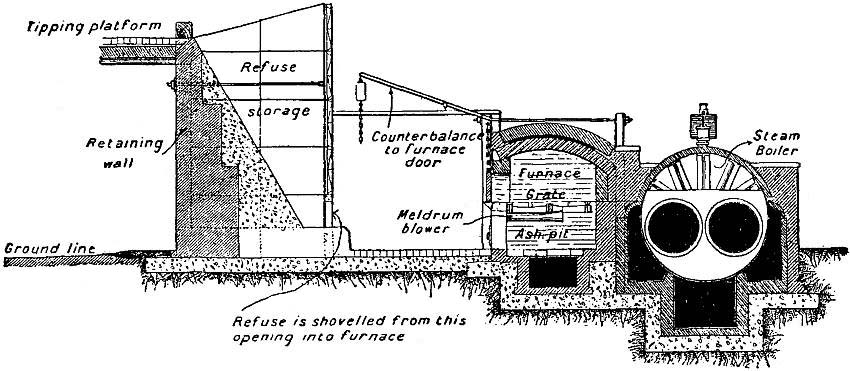 Tipping platform
Refuse
storage
Retaining
wall
Counterbalance
to furnace
door
Steam
Boiler
Furnace
Grate
Meldrum
blower
Ash pit
Ground line
Refuse is shovelled from this
opening into furnace